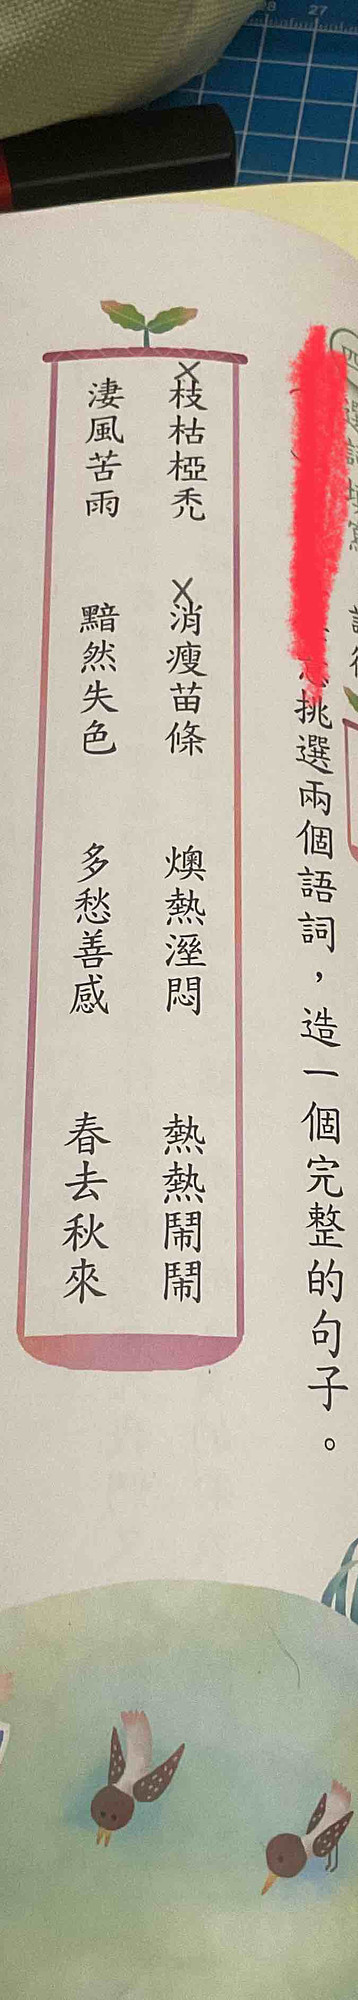 27
挑選兩個語詞，造一個完整的句子。
枝枯椏禿 消瘦苗條 燠熱溼悶 熱熱鬧鬧
淒風苦雨 黯然失色 多愁善感 春去秋來